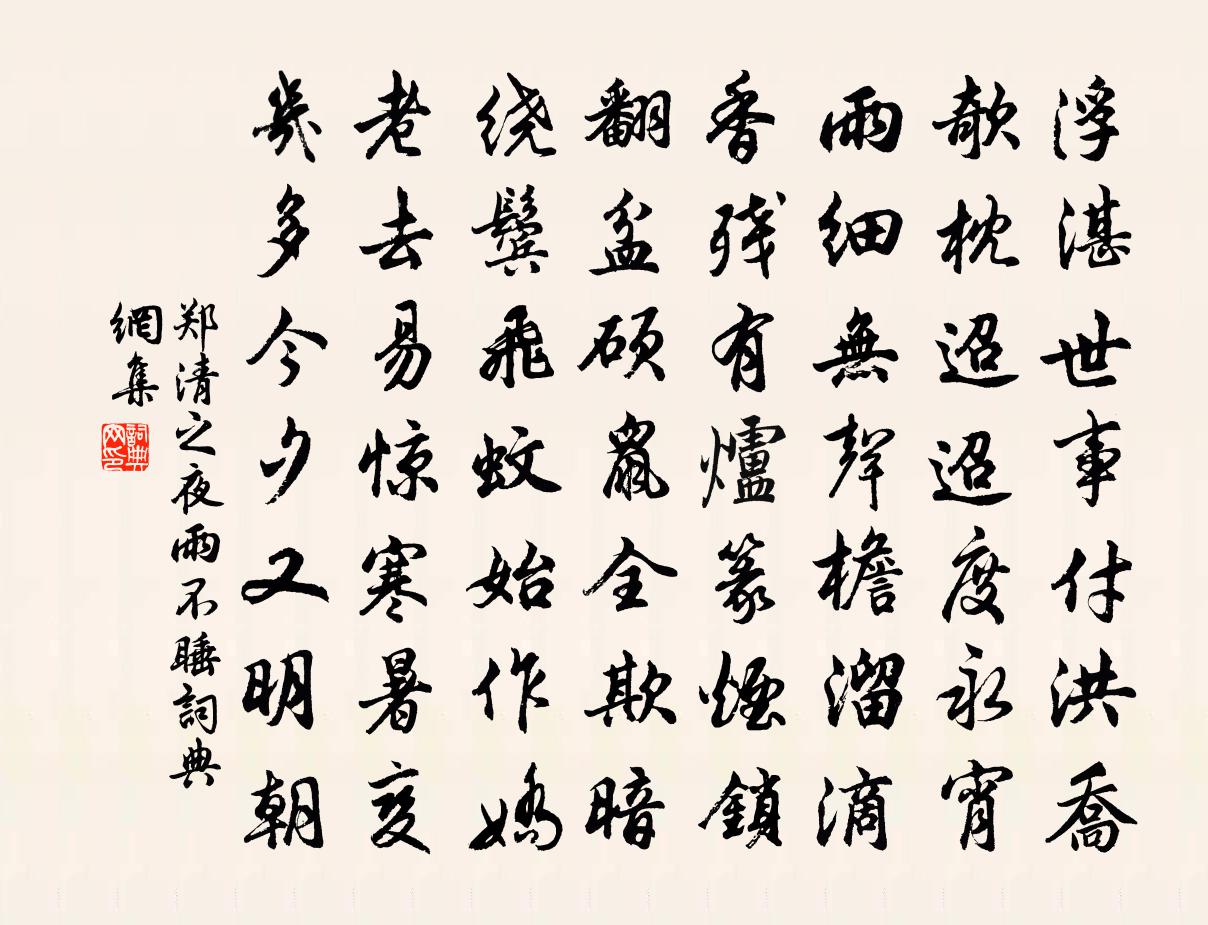 浮湛世事付洪喬
欹枕迢迢度永宵
雨細無聲檐溜滴
香残有爐篆煙鎖
翻盆硕鼠全欺暗
绕鬓飛蚊始作嬌
老去易惊寒暑变
幾多今夕又明朝
郑清之夜雨不睡詞典
網集
詞典网印